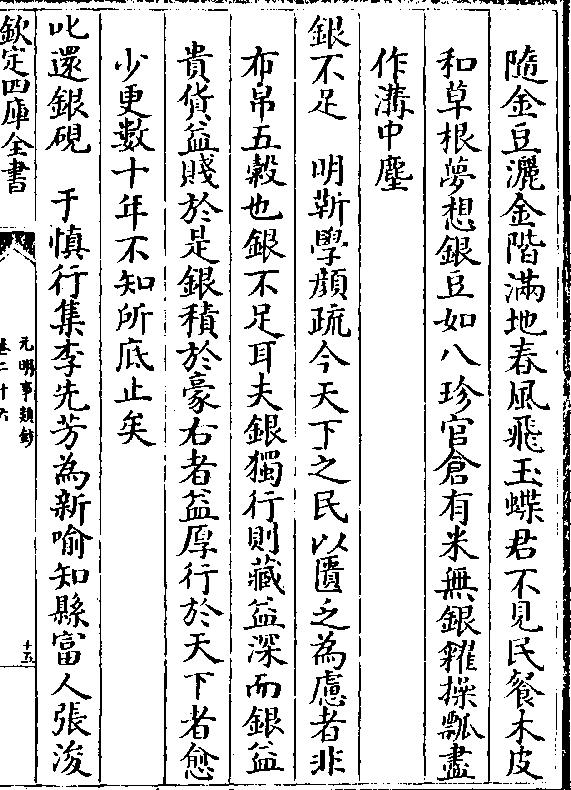 隨金豆灑金階滿地春風飛玉蝶君不見民餐木皮
和草根夢想銀豆如八珍官倉有米無銀糴操瓢盡
作溝中塵
銀不足　明靳學顔疏今天下之民以匱乏為慮者非
布帛五穀也銀不足耳夫銀獨行則藏益深而銀益
貴貨益賤於是銀積於豪右者益厚行於天下者愈
少更數十年不知所底止矣
叱還銀硯　于慎行集李先芳為新喻知縣富人張浚
欽定四庫全書
元明事類鈔
卷二十六
十五